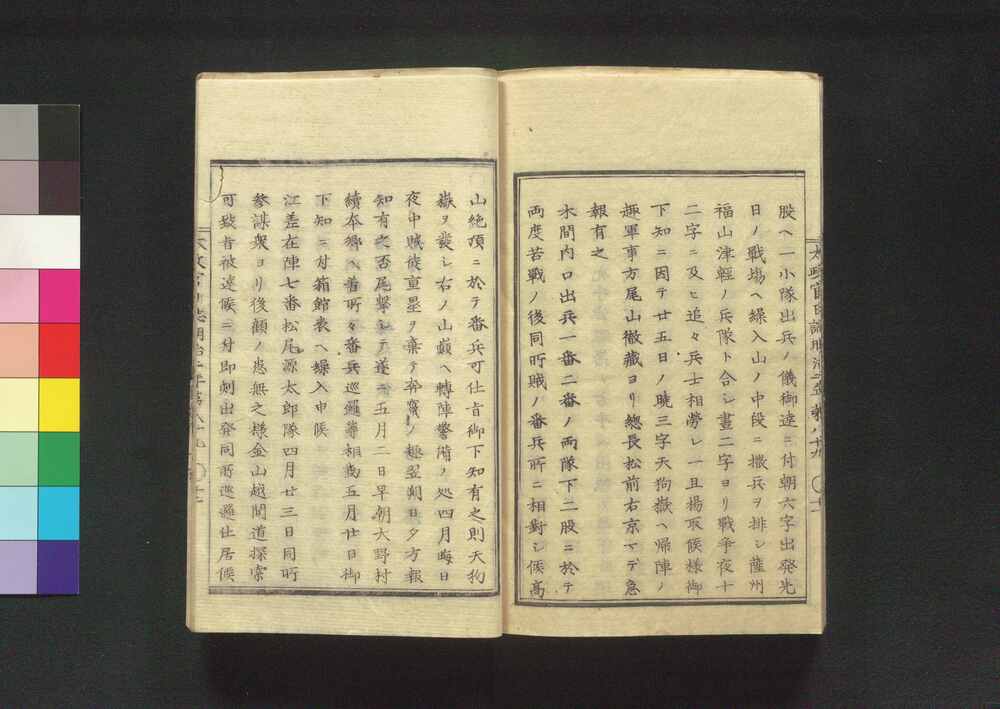 股ヘ一小隊出兵ノ儀御達ニ付朝六字出発先
日ノ戦場ヘ繰入山ノ中段ニ撒兵ヲ排シ薩州
福山津軽ノ兵隊ト合シ晝二字ヨリ戦争夜十
二字ニ及ヒ追々兵士相労レ一旦揚取候様御
下知ニ因テ廿五日ノ曉三字天狗嶽ヘ帰陣ノ
趣軍事方尾山徹蔵ヨリ總長松前右京マデ急
報有之
木間内口出兵一番二番ノ両隊下二股ニ於テ
両度苦戦ノ後同所賊ノ番兵所ニ相對シ候高
太政官日誌明治二年 第八十九
山絶頂ニ於テ番兵可仕旨御下知有之則天狗
嶽ヲ発シ右ノ山巓ヘ轉陣警備ノ処四月晦日
夜中賊徒重塁ヲ棄テ奔竄ノ趣翌朔日夕方報
知有之否尾撃シテ遂ニ五月二日早朝大野村
續本郷ヘ着所々番兵巡邏等相勤五月廿日御
下知ニ付箱館表ヘ繰入申候
江差在陣七番松尾源太郎隊四月廿三日同所
参謀衆ヨリ後顧ノ患無之様金山越間道探索
可致旨被達候ニ付即刻出発同所巡邏仕居候
太政官日誌明治二年第八十九